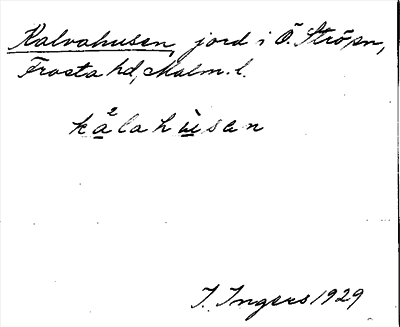 Kalvahusen, jord i Ö. Ströpn,
Frosta hd, Malm. l.
kå²lahùsen
I. Ingers 1929